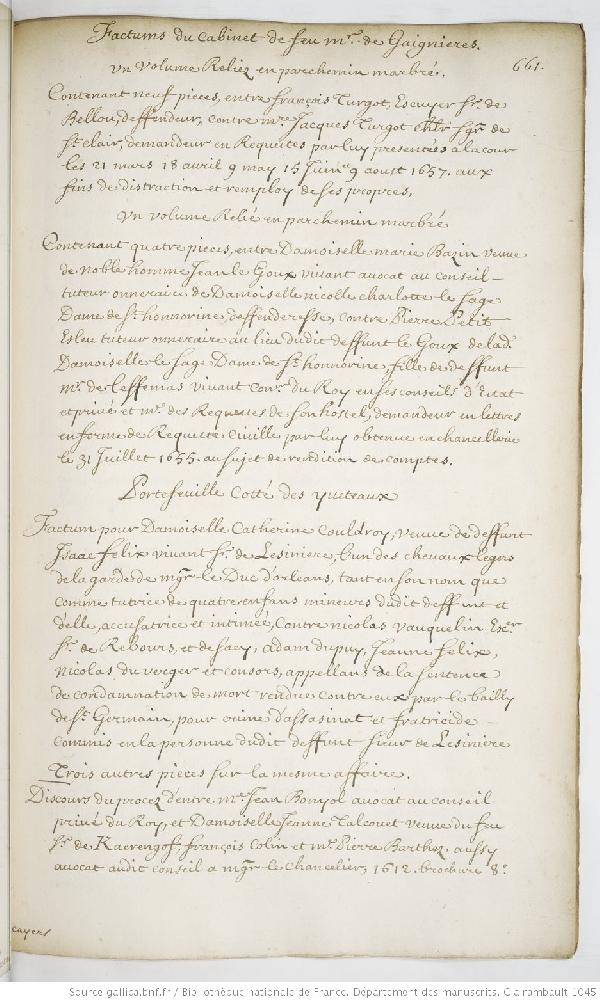 Factums du Cabinet de feu mr. de Gaignieres.
661.
Un Volume Reliez en parchemin marbré.
Contenant neuf pieces, entre françois Turgot, Escuyer sr. de
Bellou, deffendeur, contre mre. Jacques Turgot chlr sgr. de
St. clair, demandeur en Requetes par luy presentées a la cour
les 21 mars 18 avril 9 may 15 Juin et 9 aoust 1657. aux
fins de distraction et remploy de ses propres.
Un volume Relié en parchemin marbré
Contenant quatre pieces, entre Damoiselle marie Bazin veuve
de noble homme Jean le Goux vivant avocat au conseil
tuteur onneraire de Damoiselle nicolle charlotte le sage
Dame de St. honnorine, deffenderesse, contre Pierre Petit
Esleu tuteur onneraire au lieu dudit deffunt le Goux de lad.
Damoiselle le sage Dame de St. honnorine, fille de deffunt
mr. de Leffemas vivant conr. du Roy en ses conseils d'Estat
et privé et me. des Requetes de son hostel, demandeur en lettres
en forme de Requete Civille par luy obtenue en chancellerie
le 31 Juillet 1655. au sujet de reddition de comptes.
Portefeuille Cotté des yveteaux
Factum pour Damoiselle Catherine Couldroy, veuve de deffunt
Isaac felix vivant sr. de Lesiniere, l'un des chevaux legers
de la garde de mgr. le Duc d'orleans, tant en son nom que
comme tutrice de quatre enfans mineurs dudit deffunt et
d'elle, accusatrice et intimée, Contre nicolas vauquelin Exer
sr. de Rebours, et de sacy, adam dupuy, Jeanne felix,
nicolas du verger et consors, appellans de la sentence
de condamnation de mort rendue contre eux par le bailly
de St. Germain, pour crime d'assasinat et fratricide
commis en la personne dudit deffunt sieur de Lesiniere
Trois autres pieces sur la mesme affaire.
Discours du procez d'entre me. Jean Bomyol avocat au conseil
privé du Roy, et Damoiselle Jeanne Talcouet veuve du feu
sr. de Kaerengof, françois Colin et me. Pierre Barthez aussy
avocat audit conseil a mgr. le Chancelier, 1612. brochure 8°.
cayers
Source gallica.bnf.fr / Bibliothèque nationale de France. Département des manuscrits. Clairambault 1045